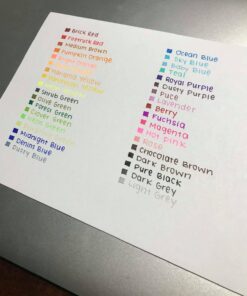 Brick Red
Firetruck Red
Medium Brown
Pumpkin Orange
Shrub Green
Olive Green
Forest Green
Clover Green
Midnight Blue
Denim Blue
Dusty Blue
Ocean Blue
Sky Blue
Baby Blue
Teal
Royal Purple
Dusty Purple
Puce
Lavender
Berry
Fuchsia
Magenta
Hot Pink
Rose
Chocolate Brown
Dark Brown
Pure Black
Dark Grey
Light Grey